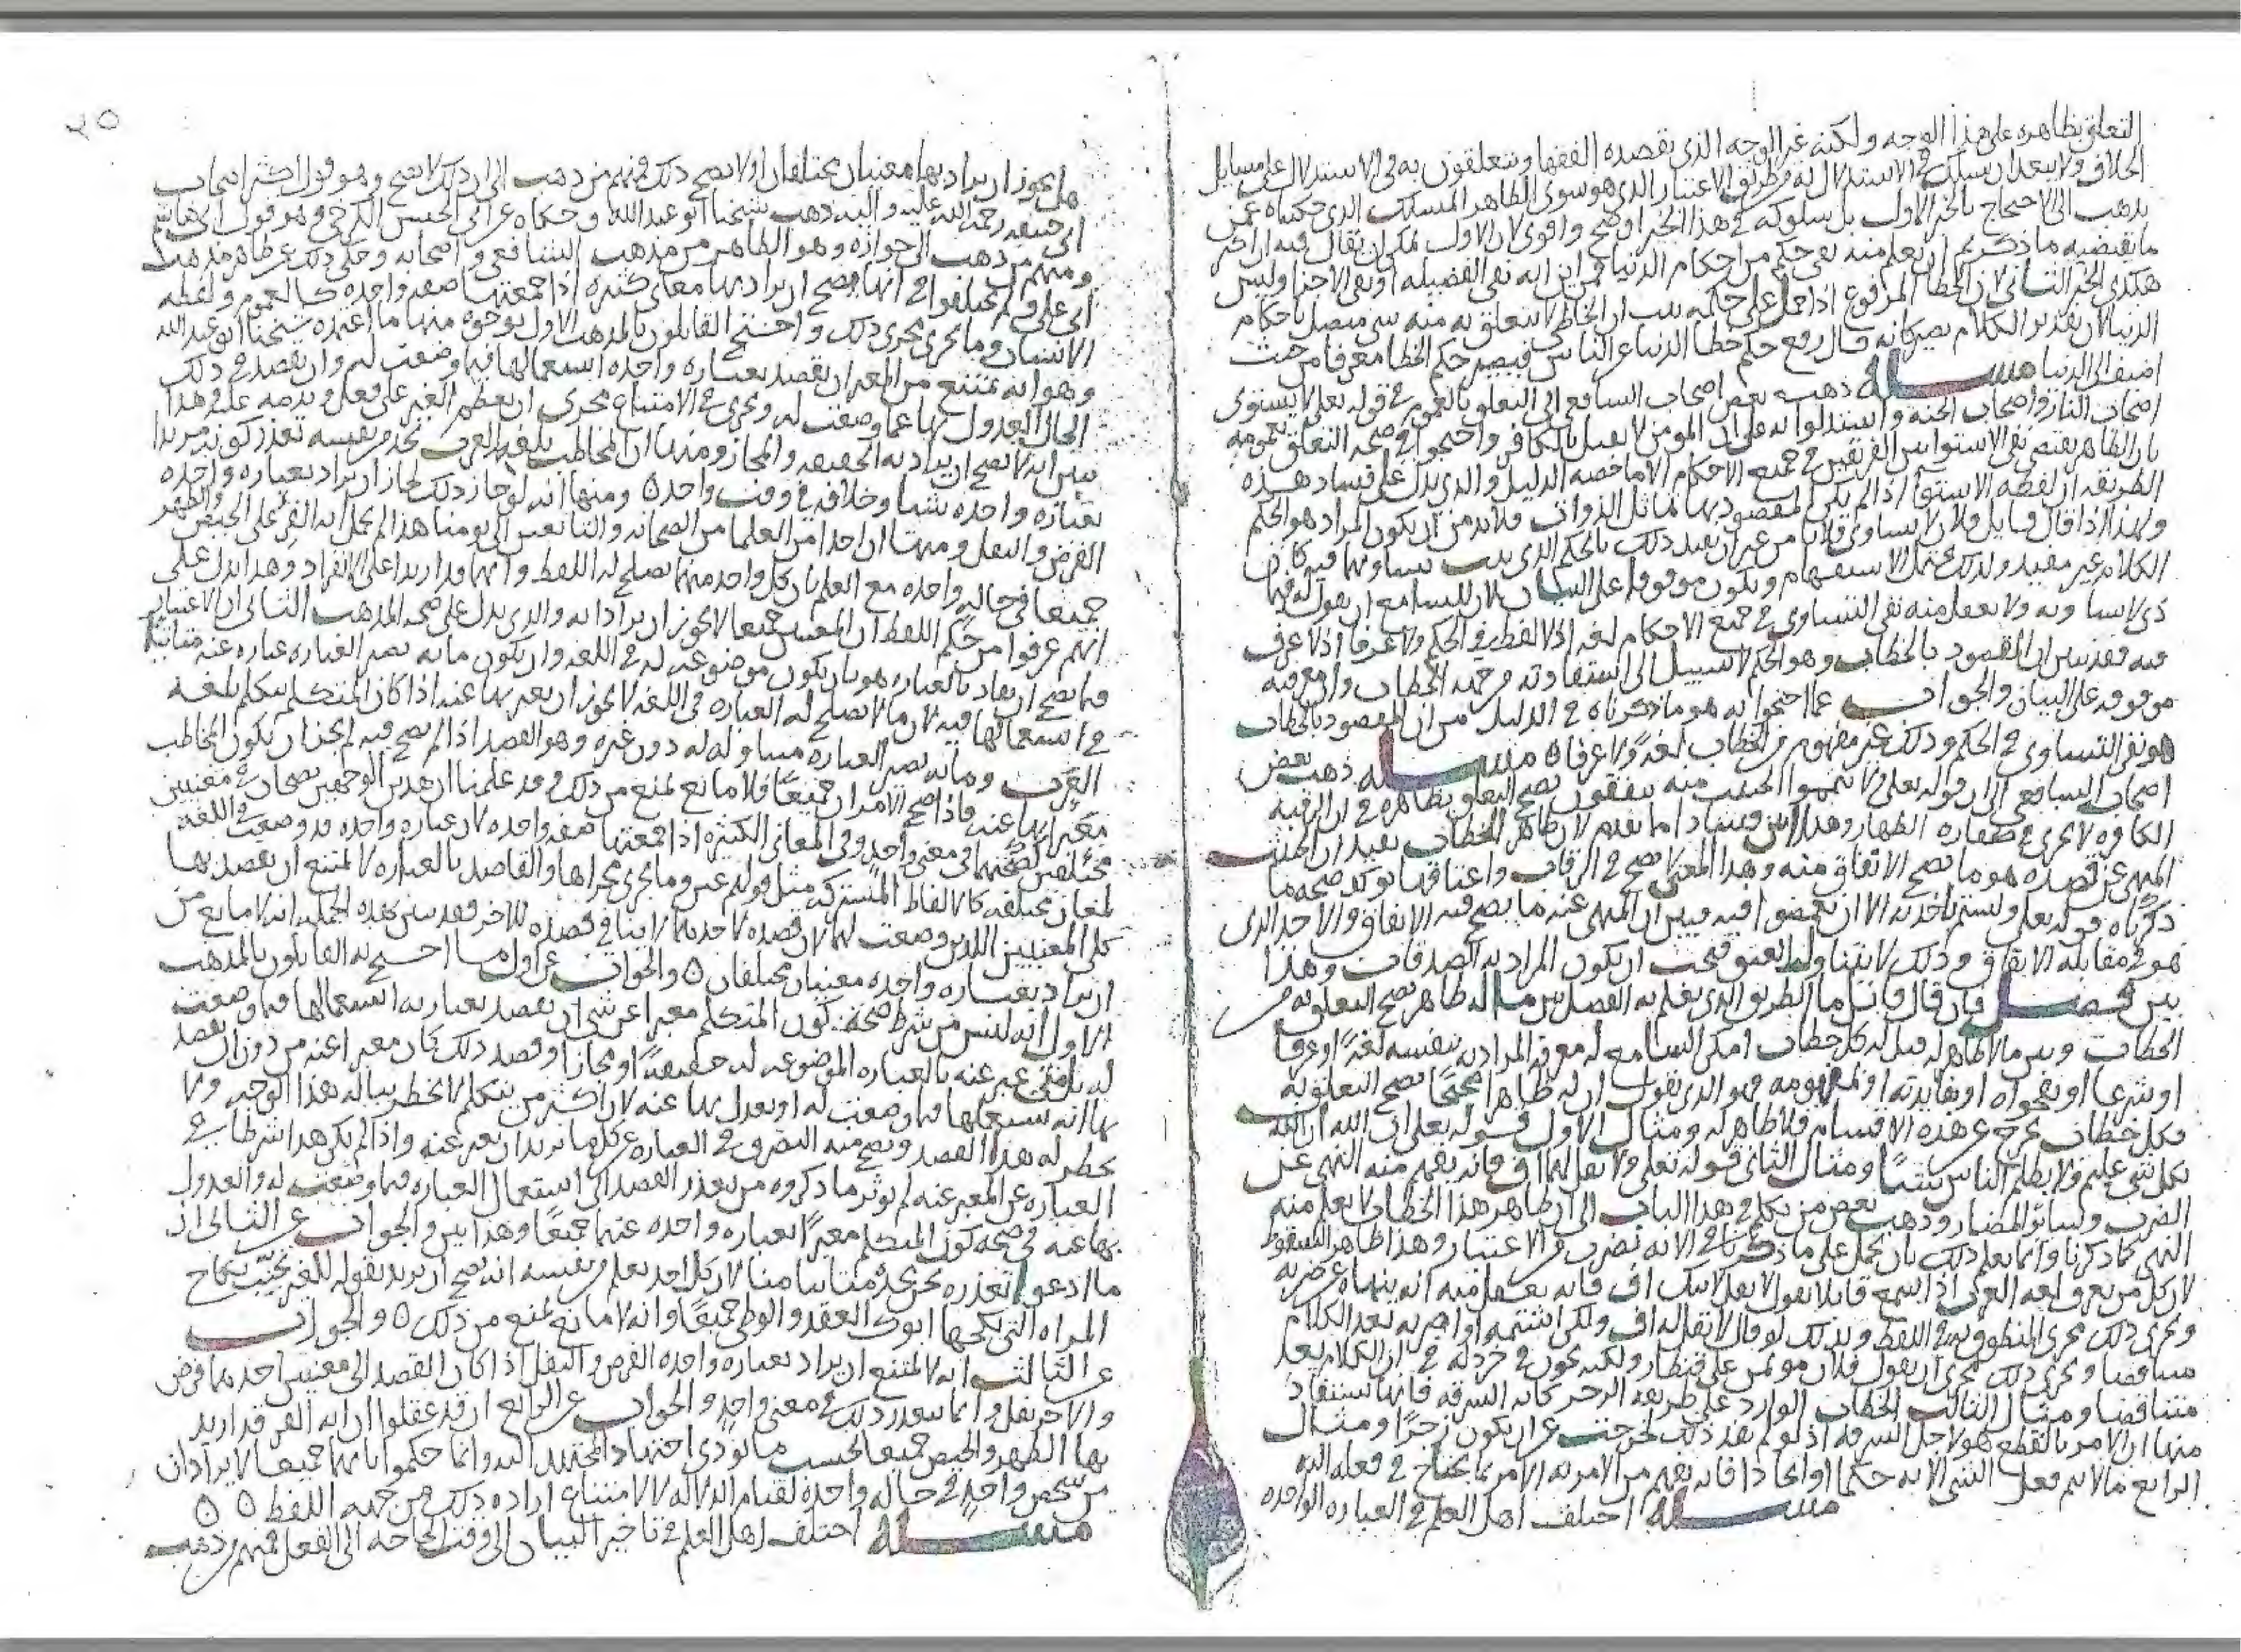 التعلق بظاهره على هذا الوجه ولكنه غير الوجه الذي يقصده الفقها ويتعلقون به في الاستدلال على مسايل
الخلاف ولا يبعد ان يسلك في الاستدلال به من طريق الاعتبار الذي هو سوى الظاهر المسلك الذي حكيناه عمن
يذهب الى الاحتجاج بالخبر الاول بل سلوكه في هذا الخبر اوضح واقوى لان الاول يمكن ان يقال فيه ان اخر
ما يقتضيه ما ذكرتم ان يعلم منه نفي حكم من احكام الدنيا فمن اين انه نفي الفضيله او نفي الاجزا وليس
هكذى الخبر الثاني لان الخطا المرفوع اذا حمل على حكمه ثبت ان الخاطى لا يتعلق به منه شي متصل باحكام
الدنيا لان تقدير الكلام يصير كانه قال رفع حكم خطا الدنيا عن الناس فيصير حكم الخطا معرفا من حيث
اضيف الى الدنيا مسله ذهب بعض اصحاب الشافعي الى التعلق بالعموم في قوله تعلى لا يستوى
اصحاب النار واصحاب الجنه واستدلوا به على ان المومن لا يقتل بالكافر واحتجوا في صحه التعلق بعمومه
بان الظاهر يقتضي نفي الاستوا بين الفريقين في جميع الاحكام الا ما خصه الدليل والذي يدل على فساد هذه
الطريقه ان لفظه الاستوا اذا لم يكن المقصود بها تماثل الذوات فلا بد من ان يكون المراد هو الحكم
ولهذا اذا قال قايل فلان لا يساوى فلانا من غير ان يقيد ذلك بالحكم الذي يثبت تساويهما فيه كان
الكلام غير مفيد ولذلك يحتمل الاستفهام ويكون موقوفا على البيان لان للسامع ان يقول له فيما
ذى لا يساويه ولا يعقل منه نفي التساوى في جميع الاحكام لغه اذ لا لفظ في الحكم ولا عرفا اذ لا عرف
فيه فقد تبين ان المقصود بالخطاب وهو الحكم لا سبيل الى استفادته من جهه الخطاب وان معرفته
موقوفه على البيان والجواب عما احتجوا به هو ما ذكرناه في الدليل من ان المقصود بالخطاب
هو نفي التساوى في الحكم وذلك غير مفهوم من الخطاب لغه ولا عرفا ٥ مسله ذهب بعض
اصحاب الشافعي الى ان قوله تعلى ولا تيمموا الخبيث منه تنفقون يصح التعلق بظاهره في ان الرقبه
الكافره لا تجرى في كفاره الظهار وهذا ابين فسادا مما تقدم لان ظاهر الخطاب يفيد ان الخبيث
المنهى عن قصده هو ما يصح الانفاق منه وهذا المعنى لا يصح في الرقاب واعتاقها يوكد صحه ما
ذكرناه قوله تعلى ولستم باخذيه الا ان تغمضوا فيه فبين ان المنهى عنه ما يصح فيه الانفاق والاخذ الذى
هو في مقابله الانفاق وذلك لا يتناول العتق فيجب ان يكون المراد به الصدقات وهذا
بين فصل فان قال قايل ما الطريق الذى يعلم به الفصل بين ما له ظاهر يصح التعلق به من
الخطاب وبين ما لا ظاهر له قيل له كل خطاب امكن السامع له معرفه المراد به بنفسه لغه او عرفا
او شرعا او بفحواه او بفايدته او بمفهومه فهو الذى نقول ان له ظاهرا صحيحا يصح التعلق به
فكل خطاب خرج عن هذه الاقسام فلا ظاهر له ومثال الاول قوله تعلى ان الله
بكل شي عليم ولا يظلم الناس شيئا ومثال الثاني قوله تعلى ولا تقل لهما اف فانه يفهم منه النهى عن
الضرب وساير المضار وذهب بعض من تكلم في هذا الباب الى ان ظاهر هذا الخطاب لا يعلم منه
النهى كما ذكرنا وانما يعلم ذلك بان يحمل على ما ذكرنا في الايه بضرب من الاعتبار وهذا ظاهر السقوط
لان كل من يعرف لغه العرب اذا سمع قايلا يقول لا تقل لابيك اف فانه يعقل منه انه ينهاه عن ضربه
ويجرى ذلك مجرى المنطوق به في اللفظ ولذلك لو قال لا تقل له اف ولكن اشتمه او اضربه لعد الكلام
متناقضا ويجرى ذلك مجرى ان يقول فلان موتمن على قنطار ولكنه يخون في خردله في ان الكلام يعد
متناقضا ومثال الثالث الخطاب الوارد على طريقه الزجر كايه السرقه فانها يستفاد
منها ان الامر بالقطع هو لاجل السرقه اذ لو لم يفد ذلك لخرجت عن ان يكون زجرا ومثال
الرابع ما لا يتم فعل الشي الا به حكما او ايجادا فانه يفهم من الامر به الامر بما يحتاج في فعله اليه
مسله اختلف اهل العلم في العباره الواحده
٢٥
هل يجوز ان يراد بها معنيان مختلفان او لا يصح ذلك فمنهم من ذهب الى ان ذلك لا يصح وهو قول اكثر اصحاب
ابي حنيفه رحمه الله عليه واليه ذهب شيخنا ابو عبد الله وحكاه عن ابي الحسن الكرخي وهو قول ابي هاشم
ومنهم من ذهب الى جوازه وهو الظاهر من مذهب الشافعي واصحابه وحكي ذلك عن ظاهر مذهب
ابي علي ولم يختلفوا في انها يصح ان يراد بها معاني كثيره اذا جمعتها صفه واحده كالعموم ولفظه
الانسان وما يجرى مجرى ذلك واحتج القايلون بالمذهب الاول بوجوه منها ما اعتمده شيخنا ابو عبد الله
وهو انه يمتنع من المعبر ان يقصد بعباره واحده استعمالها فيما وضعت له وان يقصد في ذلك
الحال العدول بها عما وضعت له ويجرى في الامتناع مجرى ان يعظم الغير على فعل ويذمه عليه وهذا
يبين انه لا يصح ان يراد به الحقيقه والمجاز ومنها ان المخاطب بلغه العرب يجد من نفسه تعذر كونه مريدا
بعباره واحده شيا وخلافه في وقت واحد ٥ ومنها انه لو جاز ذلك لجاز ان يراد بعباره واحده
الفرض والنفل ومنها ان احدا من العلما من الصحابه والتابعين الى يومنا هذا لم يحمل ايه القرء على الحيض والطهر
جميعا في حاله واحده مع العلم بان كل واحد منهما يصلح له اللفظ وانهما قد اريدا على الانفراد وهذا يدل على
انهم عرفوا من حكم اللفظ ان المعنيين جميعا لا يجوز ان يرادا به والذى يدل على صحه المذهب الثاني ان الاعتبار
فيما يصح ان يفاد بالعباره هو بان يكون موضوعه له في اللغه وان يكون ما به تصير العباره عباره عنه متاتيا
في استعمالها فيه لان ما لا يصلح له العباره في اللغه لا يجوز ان يعبر بها عنه اذا كان المتكلم يتكلم بلغه
العرب وما به تصير العباره متناوله له دون غيره وهو القصد اذا لم يصح فيه لم يجز ان يكون المخاطب
معبرا بها عنه فاذا صح الامران جميعا فلا مانع يمنع من ذلك وقد علمنا ان هذين الوجهين يصحان في معنيين
مختلفين كصحتهما في معنى واحد وفي المعاني الكثيره اذا جمعتها صفه واحده لان عباره واحده قد وضعت في اللغه
لمعان مختلفه كالالفاظ المشتركه مثل قولهم عين وما يجرى مجراها والقاصد بالعباره لا يمتنع ان يقصد بها
كلى المعنيين اللذين وضعت لهما لان قصده لاحدهما لا ينافي قصده للاخر فقد تبين بهذه الجمله انه لا مانع من
ان يراد بعباره واحده معنيان مختلفان ٥ والجواب عن اول ما احتج به القايلون بالمذهب
الاول انه ليس من شرط صحه كون المتكلم معبرا عن شي ان يقصد بعبارته استعمالها فيما وضعت
له بل متى عبر عنه بالعباره الموضوعه له حقيقه او مجازا وقصد ذلك كان معبرا عنه من دون ان يقصد
بها انه يستعملها فيما وضعت له او يعدل بها عنه لان اكثر من يتكلم لا يخطر بباله هذا الوجه ولا
يخطر له هذا القصد ويصح منه التصرف في العباره عن كل ما يريد ان يعبر عنه واذا لم يكن هذا شرطا في
العباره عن المعبر عنه لم يوثر ما ذكروه من تعذر القصد الى استعمال العباره فيما وضعت له والعدول
بها عنه في صحه كون المتكلم معبرا بعباره واحده عنهما جميعا وهذا بين والجواب عن الثاني ان
ما ادعوا تعذره نحن نجده متاتيا منا لان كل احد يعلم من نفسه انه يصح ان يريد بقوله للغير تجنب نكاح
المراه التي نكحها ابوك العقد والوطى جميعا وانه لا مانع يمنع من ذلك ٥ والجواب
عن الثالث انه لا يمتنع ان يراد بعباره واحده الفرض والنفل اذا كان القصد الى معنيين احدهما فرض
والاخر نفل وانما يتعذر ذلك في معنى واحد والجواب عن الرابع ان قد عقلوا ان ايه القرء قد اريد
بها الطهر والحيض جميعا بحسب ما يودى اجتهاد المجتهد اليه وانما حكموا بانهما جميعا لا يرادان
من شخص واحد في حاله واحده لقيام الدلاله لا لامتناع اراده ذلك من جهه اللفظ ٥ ٥
مسله اختلف اهل العلم في تاخير البيان الى وقت الحاجه الى الفعل فمنهم من ذهب